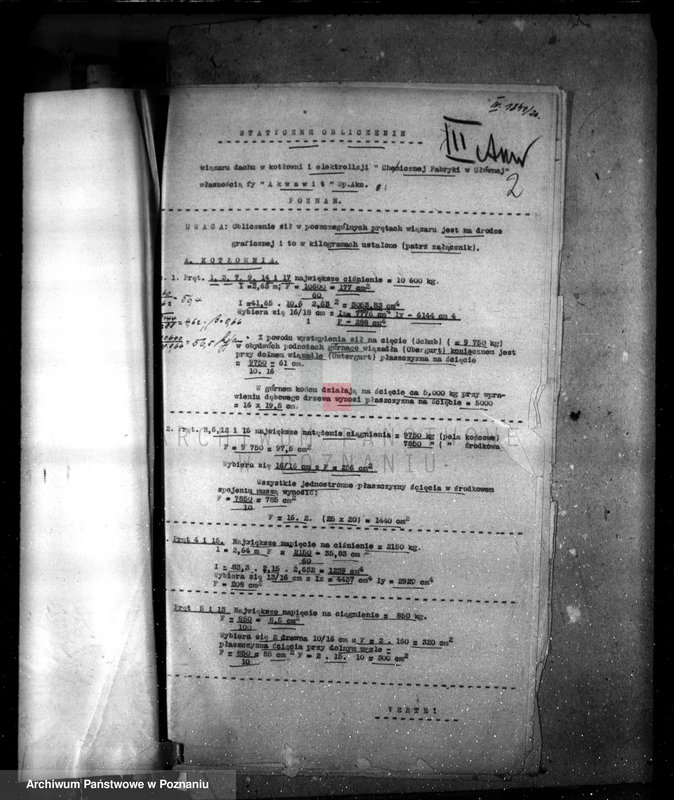 IV. 1841/20.
STATYCZNE OBLICZENIE
III
wiązaru dachu w kotłowni i elektrolizji " Chemicznej Fabryki w Głównej"
własnością fy " A k w a w i t " Sp.Akc.
2
P O Z N A N.
U W A G A: Obliczenie sił w poszczególnych prętach wiązaru jest na drodze
graficznej i to w kilogramach ustalone (patrz załącznik).
A. KOTŁOWNIA.
1. Pręt. 1, 3, 7, 9, 14 i 17 największe ciśnienie = 10 600 kg.
I =2,63 m; F = 10600 = 177 cm2
60
I =41,65 . 10,6 2,63 2 = 3053,83 cm4
Wybiera się 16/18 cm z Ix = 7776 cm4 Iy - 6144 cm 4
i F = 288 cm2
Z powodu wystąpienia sił na cięcie (Schub) ( = 9 750 kg)
w obydwóch podnożach górnego wiązadła (Obergurt) koniecznem jest
przy dolnem wiązadle (Untergurt) płaszczyzna na ścięcie
= 9750 = 61 cm.
10. 16
W górnem końcu działają na ścięcie ca 5,000 kg przy wpra-
wieniu dębowego drzewa wynosi płaszczyzna na ścięcie = 5000
= 16 x 19,5 cm.
2. Pręt. 2,6,12 i 16 największe natężenie ciągnienia = 9750 kg (pola końcowe)
7850 " ( " środkowa
F = 9 750 = 97,5 cm2
Wybiera się 16/16 cm z F = 256 cm2
Wszystkie jednostronne płaszczyzny ścięcia w środkowem
spojeniu muszą wynosić:
F = 7850 = 785 cm2
10
F = 16. 2. (25 x 20) = 1440 cm2
Pręt 4 i 15. Największe napięcie na ciśnienie = 2150 kg.
l = 2,64 m F = 2150 = 35,83 cm2
60
I = 83,3 . 2,15 . 2,632 = 1239 cm4
Wybiera się 13/16 cm z Ix = 4437 cm4 Iy = 2920 cm4
F = 208 cm2
Pręt 5 i 13 Największe napięcie na ciągnienie = 850 kg.
F = 850 = 8,5 cm2
100
Wybiera się 2 drewna 10/16 cm z F = 2 . 160 = 320 cm2
płaszczyzna ścięcia przy dolnym węźle =
F = 850 = 85 cm2 F = 2 . 15. 10 = 300 cm2
10
V E R T E !
ARCHIWUM PAŃSTWOWE
W POZNANIU
Archiwum Państwowe w Poznaniu